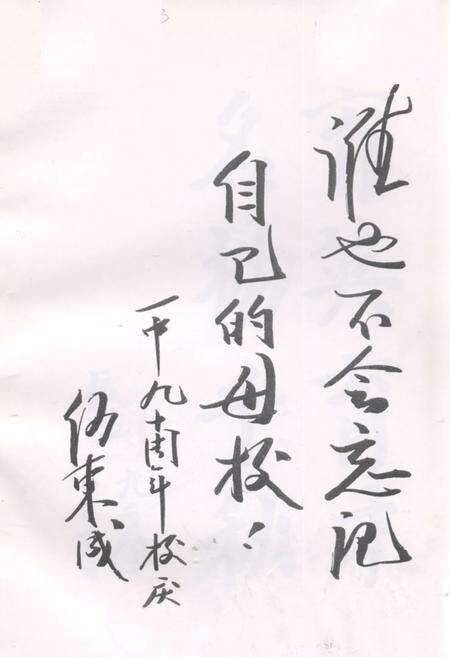 谁也不会忘记
自己的母校！
一中九十周年校庆
东咸